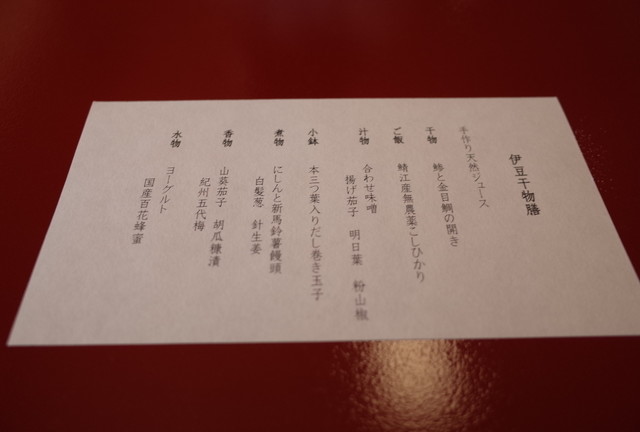 伊豆干物膳
手作り天然ジュース
干物 鯵と金目鯛の開き
ご飯 鯖江産無農薬こしひかり
汁物 合わせ味噌
揚げ茄子 明日葉 粉山椒
小鉢 本三つ葉入りだし巻き玉子
煮物 にしんと新馬鈴薯饅頭
白髪葱 針生姜
香物 山葵茄子 胡瓜糠漬
紀州五代梅
水物 ヨーグルト
国産百花蜂蜜